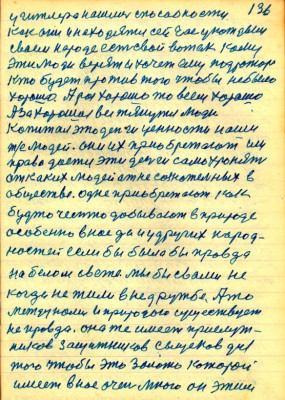 136
у гитлера нашли способности
как они и находятся сей час у нас даже
своем народе есть свой вот так кому
эти люди верят и хочет ему подзатор
кто будет против того чтобы небыло
хорошо. А раз хорошо то всем хорошо
А за хорошая все тянутся люди
Копитал это деньги ценность нашли
те людей. они их приобретают им
право дости эти деньги само хронять
от каких людей от не сознательных в
обществе. одне приобретают как
будто честно добивают в природе
особенно в ное да и у других народ-
ностей если бы было бы правда
на белом свете. мы бы своими не
когда не жили в недружбе. А то
между нами и природой существует
не правда. она же имеет прислуж-
ников защитников сыщеков для
того чтобы это Золото которой
имеет в ное очен много он этими